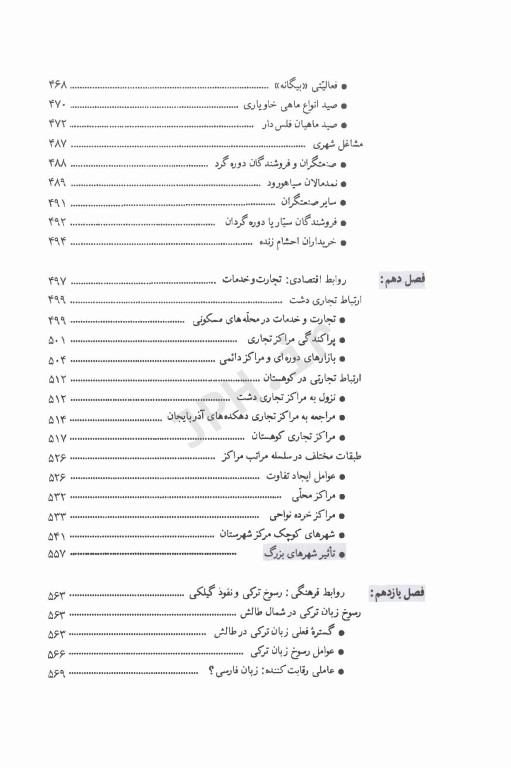 ● فعالیّتی «بیگانه» ۴۶۸
● صید انواع ماهی خاویاری ۴۷۰
● صید ماهیان فلس‌دار ۴۷۲
مشاغل شهری ۴۸۷
● صنعتگران و فروشندگان دوره گرد ۴۸۸
● نمدمالان سیاهورود ۴۸۹
● سایر صنعتگران ۴۹۱
● فروشندگان سیّار یا دوره گردان ۴۹۲
● خریداران احشام زنده ۴۹۴
فصل دهم: روابط اقتصادی: تجارت و خدمات ۴۹۷
ارتباط تجاری دشت ۴۹۹
● تجارت و خدمات در محلّه‌های مسکونی ۴۹۹
● پراکندگی مراکز تجاری ۵۰۱
● بازارهای دوره‌ای و مراکز دائمی ۵۰۴
ارتباط تجارتی در کوهستان ۵۱۲
● نزول به مراکز تجاری دشت ۵۱۲
● مراجعه به مراکز تجاری دهکده‌های آذربایجان ۵۱۴
● مراکز تجاری کوهستان ۵۱۷
طبقات مختلف در سلسله مراتب مراکز ۵۲۶
● عوامل ایجاد تفاوت ۵۲۶
● مراکز محلّی ۵۳۲
● مراکز خرده نواحی ۵۳۳
● شهرهای کوچک مرکز شهرستان ۵۴۱
● تأثیر شهرهای بزرگ ۵۵۷
فصل یازدهم: روابط فرهنگی: رسوخ ترکی و نفوذ گیلکی ۵۶۳
رسوخ زبان ترکی در شمال طالش ۵۶۳
● گسترهٔ فعلی زبان ترکی در طالش ۵۶۳
● عوامل رسوخ زبان ترکی ۵۶۶
● عاملی رقابت کننده: زبان فارسی؟ ۵۶۹